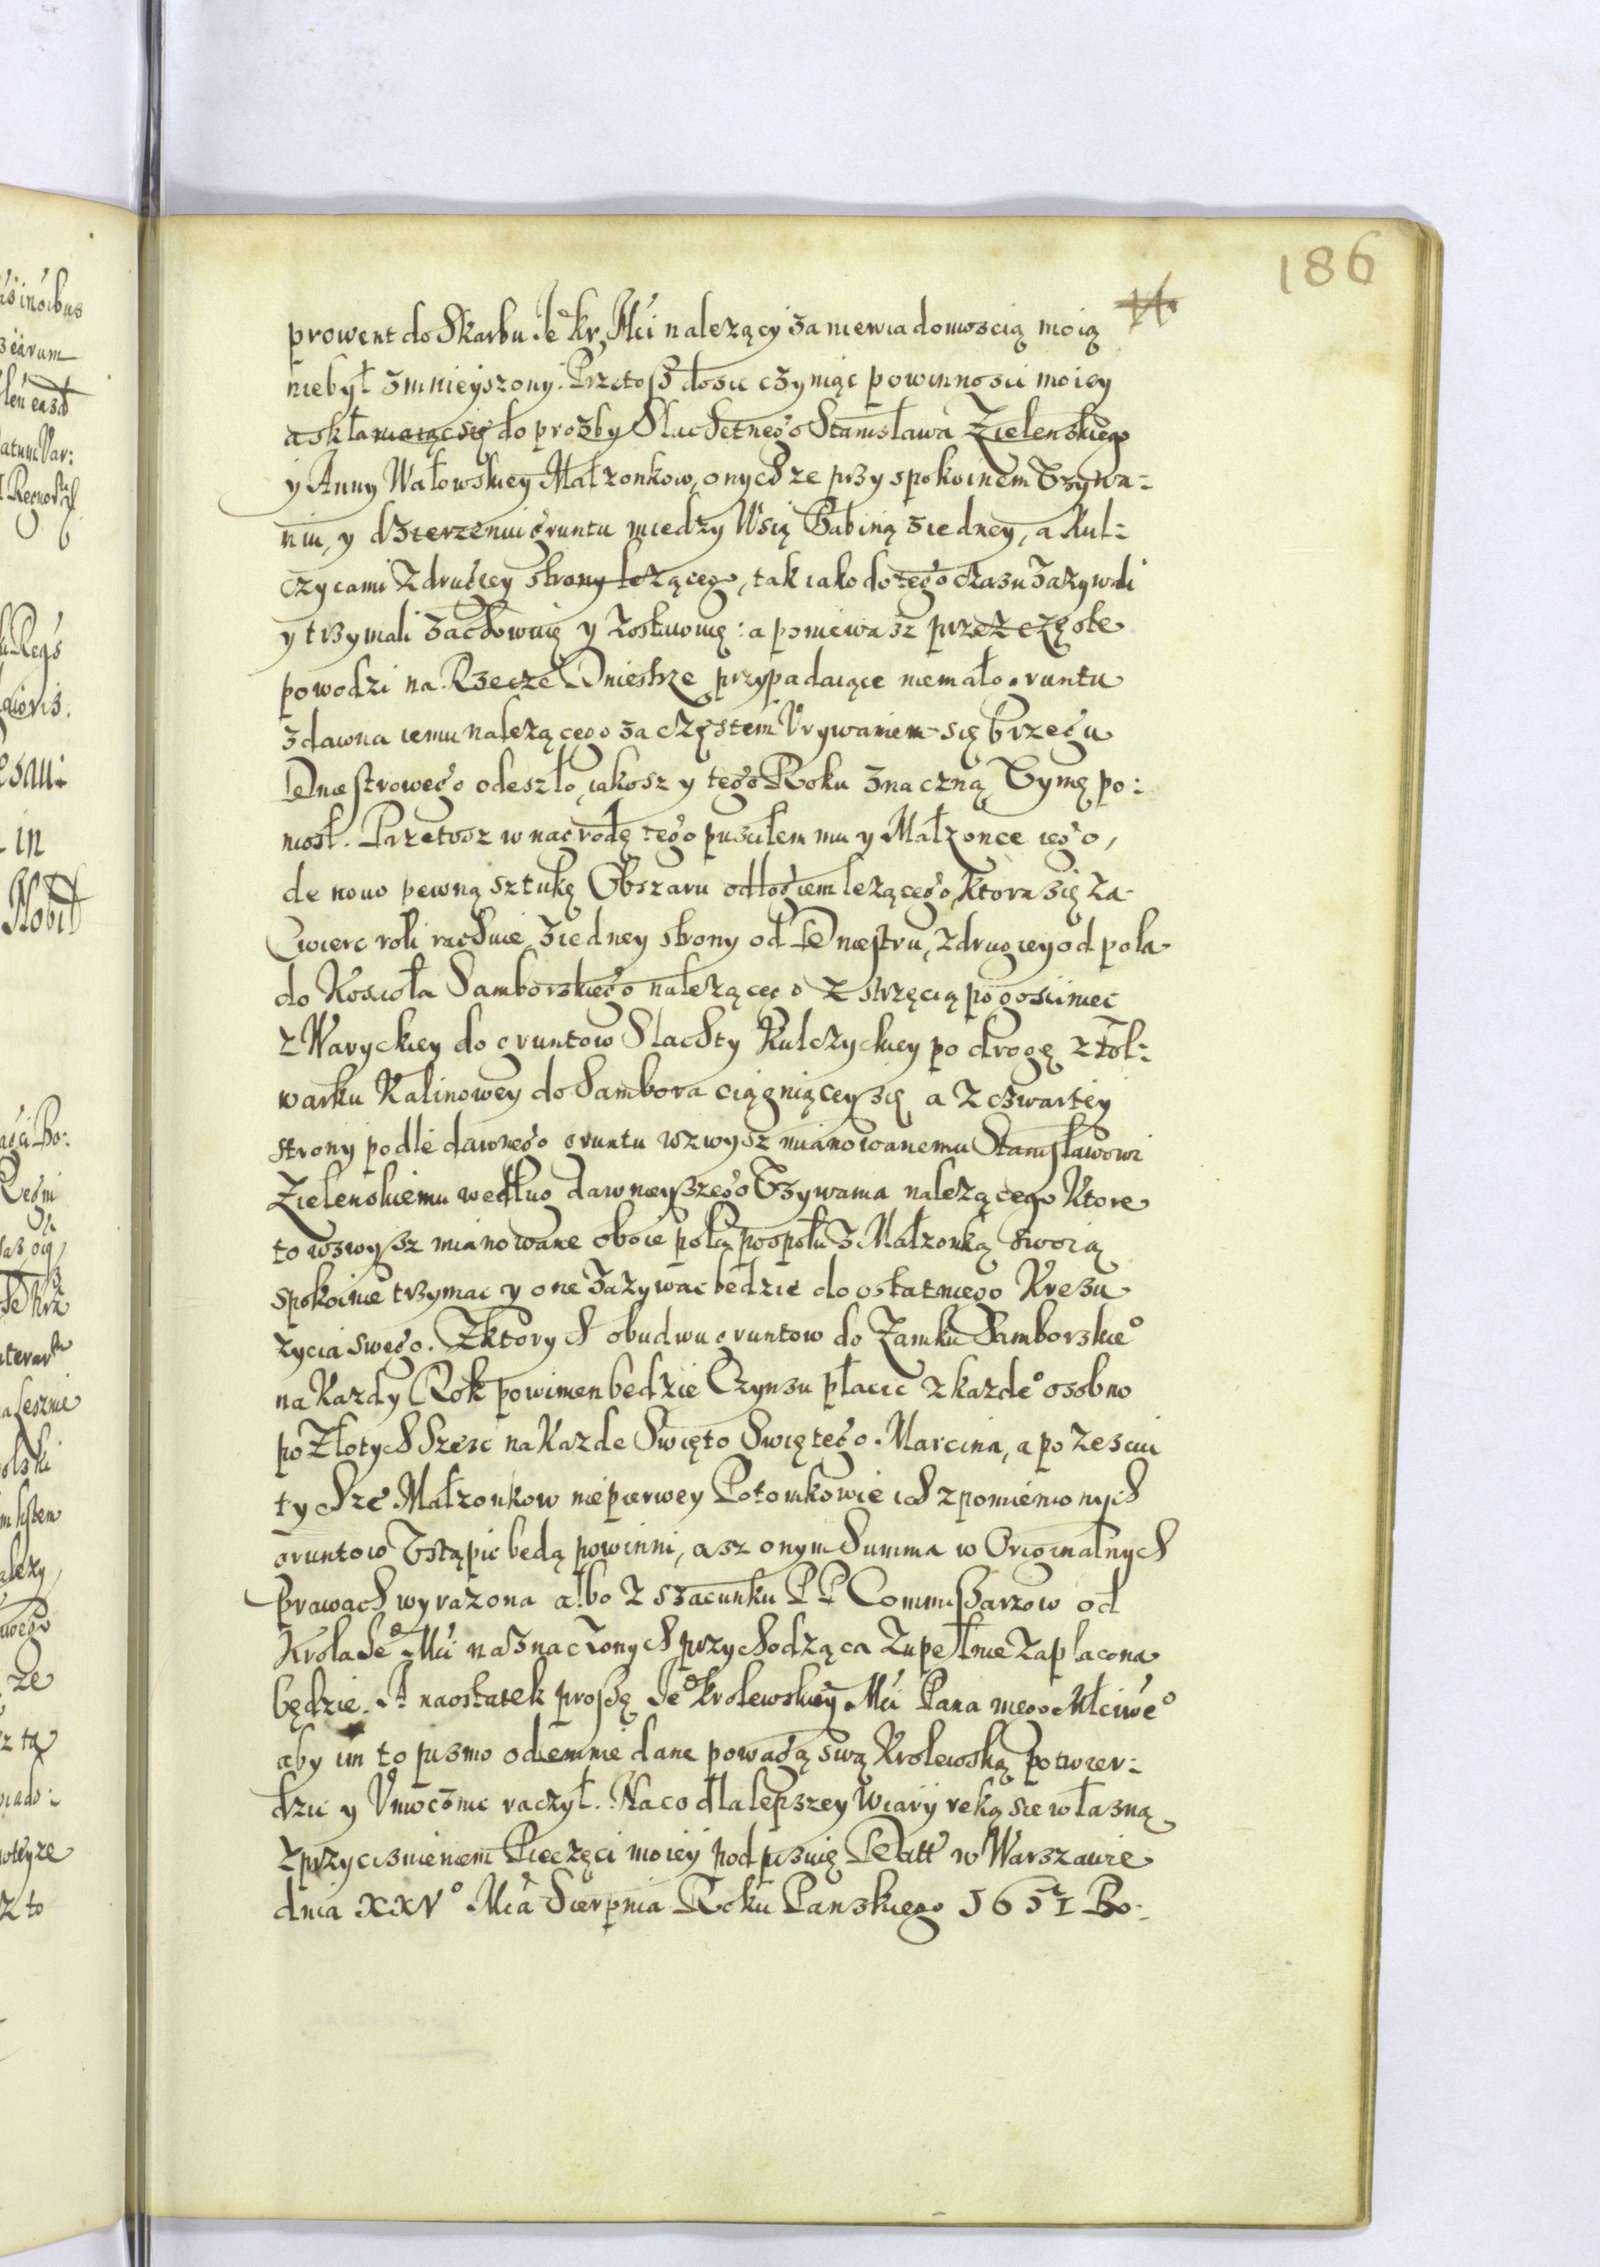 186
prowent do Skarbu Je° Kr Mci nalezący za niewiadomoscią moią
niebył zmnieyszony. Przetosz dosic czyniąc powinnosci moiey
a skłaniaiąc się do prozby Slachetnego Stanisława Zielenskiego
y Anny Wałowskiey Małzonkow, onychze przy spokoinem Vzywa-
niu, y dzierzeniu gruntu miedzy Wsią Babiną z iedney, a Kul-
czycami z drugiey strony lezącego, tak iako do tego czasu zazywali
y trzymali zachowuię y zostawuię: a poniewasz przez częste
powodzi na Rzecze Dniestrze przypadaiące niemało gruntu
zdawna iemu nalezącego za częstem Vrywaniem się brzegu
Dniestrowego odeszło, iakosz y tego Roku znaczną Vymę po-
niosł. Przetosz w nagrodę tego pusciłem mu y Małzonce iego,
de nouo pewną sztukę Obszaru odłogiem lezącego, Ktora się za
Cwierc roli rachuie, z iedney strony od Dniestru, z drugiey od pola
do Kosciła Samborskiego nalezącego z strzęcią po gosciniec
z Waryckiey do gruntow Slachty Kulczyckiey po drogę z fol-
warku Kalinowey do Sambora ciągniącey się a z czwartey
strony podle dawnego gruntu wzwysz mianowanemu Stanisławowi
Zielenskiemu według dawnieyszego Vzywania nalezącego Ktore
to wzwysz mianowane oboie pola pospołu z Małzonką swoią
spokoinie trzymac y one zazywac bedzie do ostatniego Kresu
zycia swego. Z ktorych obudwu gruntow do Zamku Samborskie°
na Kazdy Rok powinien bedzie Czynsu płacic z kazde° osobno
po Złotych Szesc na Kazde Swięto Swiętego Marcina, a po zesciu
tychze Małzonkow niepierwey Potomkowie ich z pomienionych
gruntow Vstąpic bedą powinni, asz onym Summa w Originalnych
Prawach wyrazona albo z szacunku PP Commissarzow od
Krola Je° Mci naznaczonych przychodząca zupełnie zapłacona
będzie. A naostatek proszę Je° Krolewskiey Mci Pana mego Młciwe°
aby im to pismo odemnie dane powagą swą Krolewską potwier-
dzic y Vmocznic raczył. Na co dla lepszey wiary ręką sie własną
z przycisnieniem Pieczęci moiey podpisuię Datt w Warszawie
dnia XXV° Mca Sierpnia Roku Panskiego 1651 Bo-